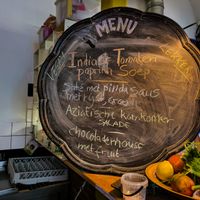 MENU
Indiase Tomaten
paprika Soep
Saté met pinda saus
met
Aziatische komkommer
SALADE
chocolademousse
met fruit